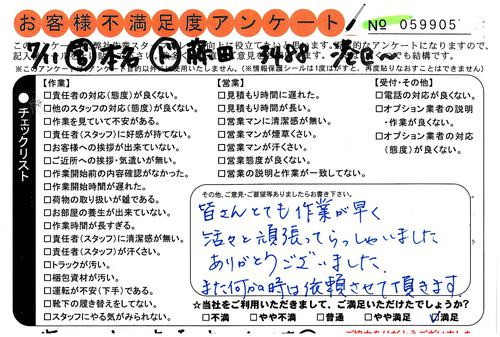 お客様不満足度アンケート
№ 059905
7/11
3488
チェックリスト
【作業】
□責任者の対応(態度)が良くない。
□他のスタッフの対応(態度)が良くない。
□作業を見ていて不安がある。
□責任者(スタッフ)に好感が持てない。
□お客様への挨拶が出来ていない。
□ご近所への挨拶・気遣いが無い。
□作業開始前の内容確認がなかった。
□作業開始時間が遅れた。
□荷物の取り扱いが雑である。
□お部屋の養生が出来ていない。
□作業時間が長すぎる。
□責任者(スタッフ)に清潔感が無い。
□責任者(スタッフ)が汗くさい。
□トラックが汚い。
□梱包資材が汚い。
□運転が不安(下手)である。
□靴下の履き替えをしてない。
□スタッフにやる気がみられない。
【営業】
□見積もり時間に遅れた。
□見積もり時間が長い。
□営業マンに清潔感が無い。
□営業マンが煙草くさい。
□営業マンが汗くさい。
□営業態度が良くない。
□営業の説明と作業が一致してない。
【受付・その他】
□電話の対応が良くない。
□オプション業者の説明
・作業が良くない。
□オプション業者の対応
(態度)が良くない。
その他、ご意見・ご要望等ありましたらお書き下さい。
皆さんとても作業が早く
活々と頑張ってらっしゃいました
ありがとうございました。
また何かの時は依頼させて頂きます。
☆当社をご利用いただきまして、ご満足いただけたでしょうか?
□不満 □やや不満 □普通 □やや満足 ☑満足